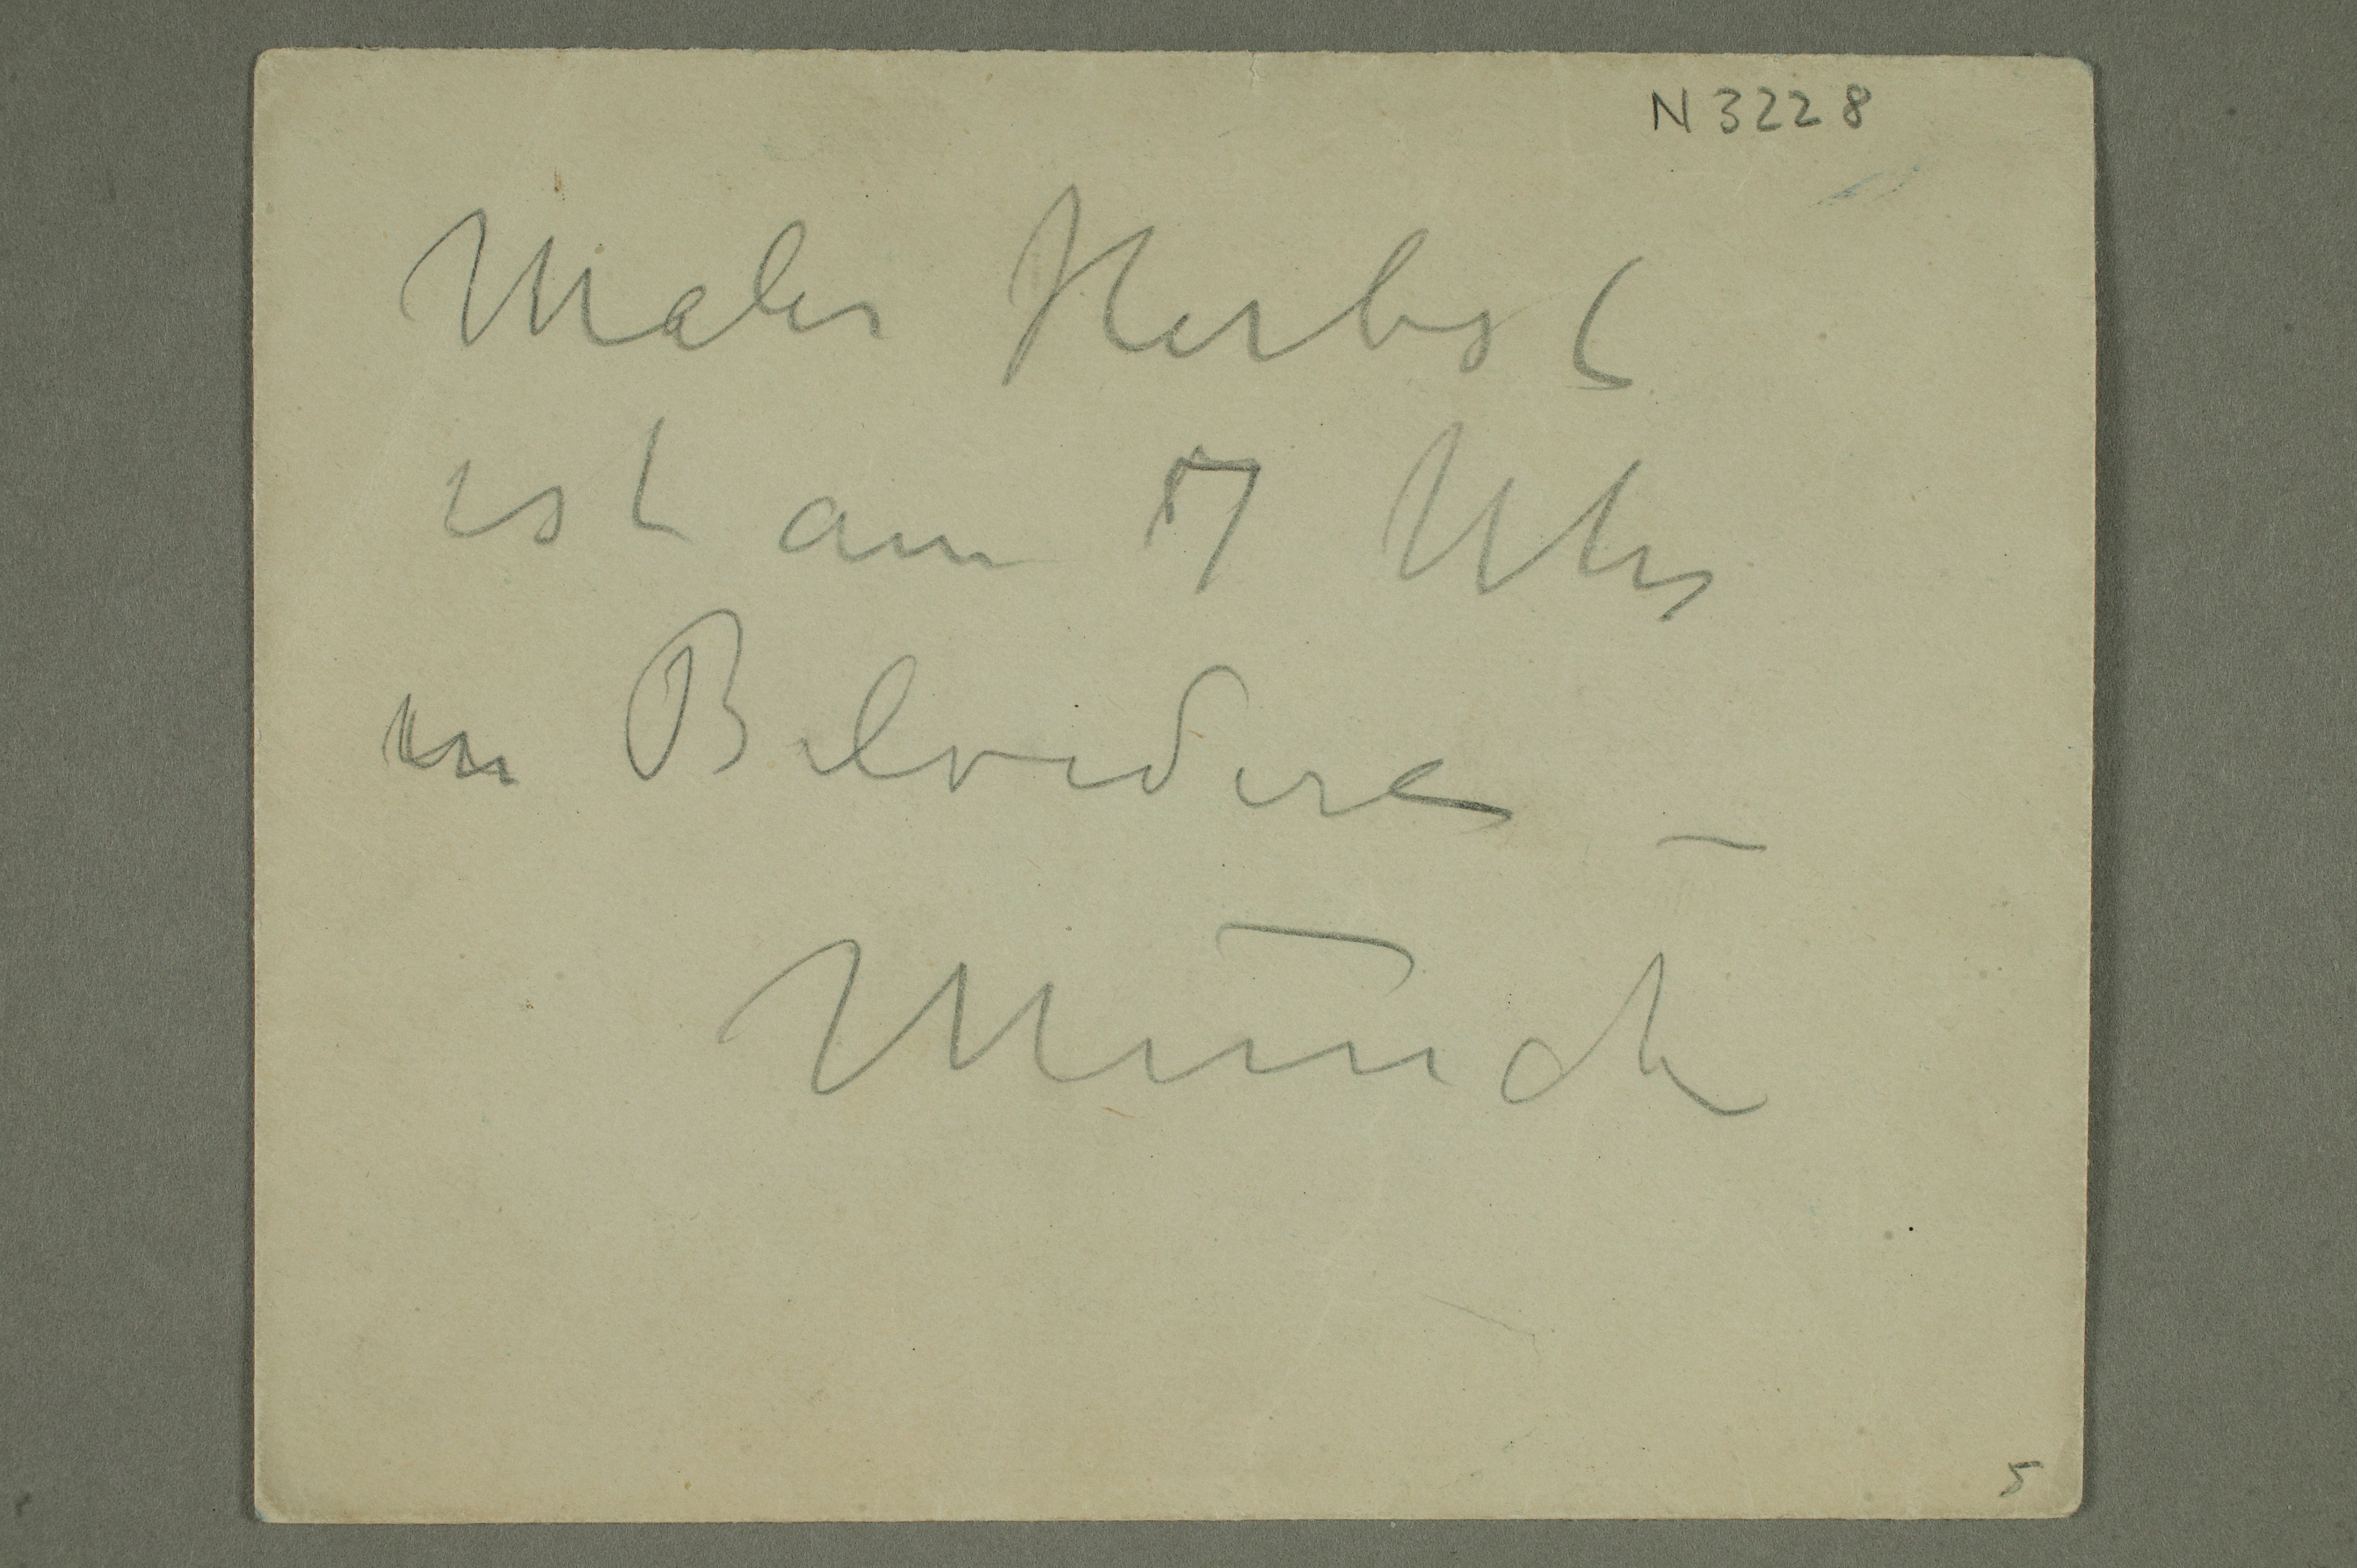 N 3228
Maler Herbst
ist am 7 Uhr
in Belvedere –
Munch
5